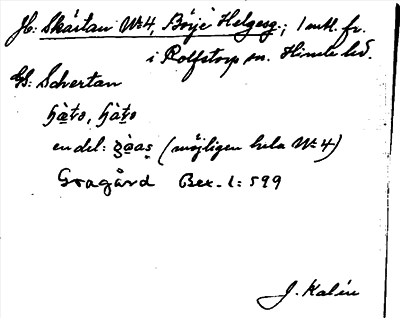 H: Skärtan Nr 4, Börje Helgesg.; 1 mtl. fr.
i Rolfstorp sn. Himle hd.
GS: Schertan
en del: (möjligen hela Nr 4)
Gragård Bex. 1: 599
J. Kalén